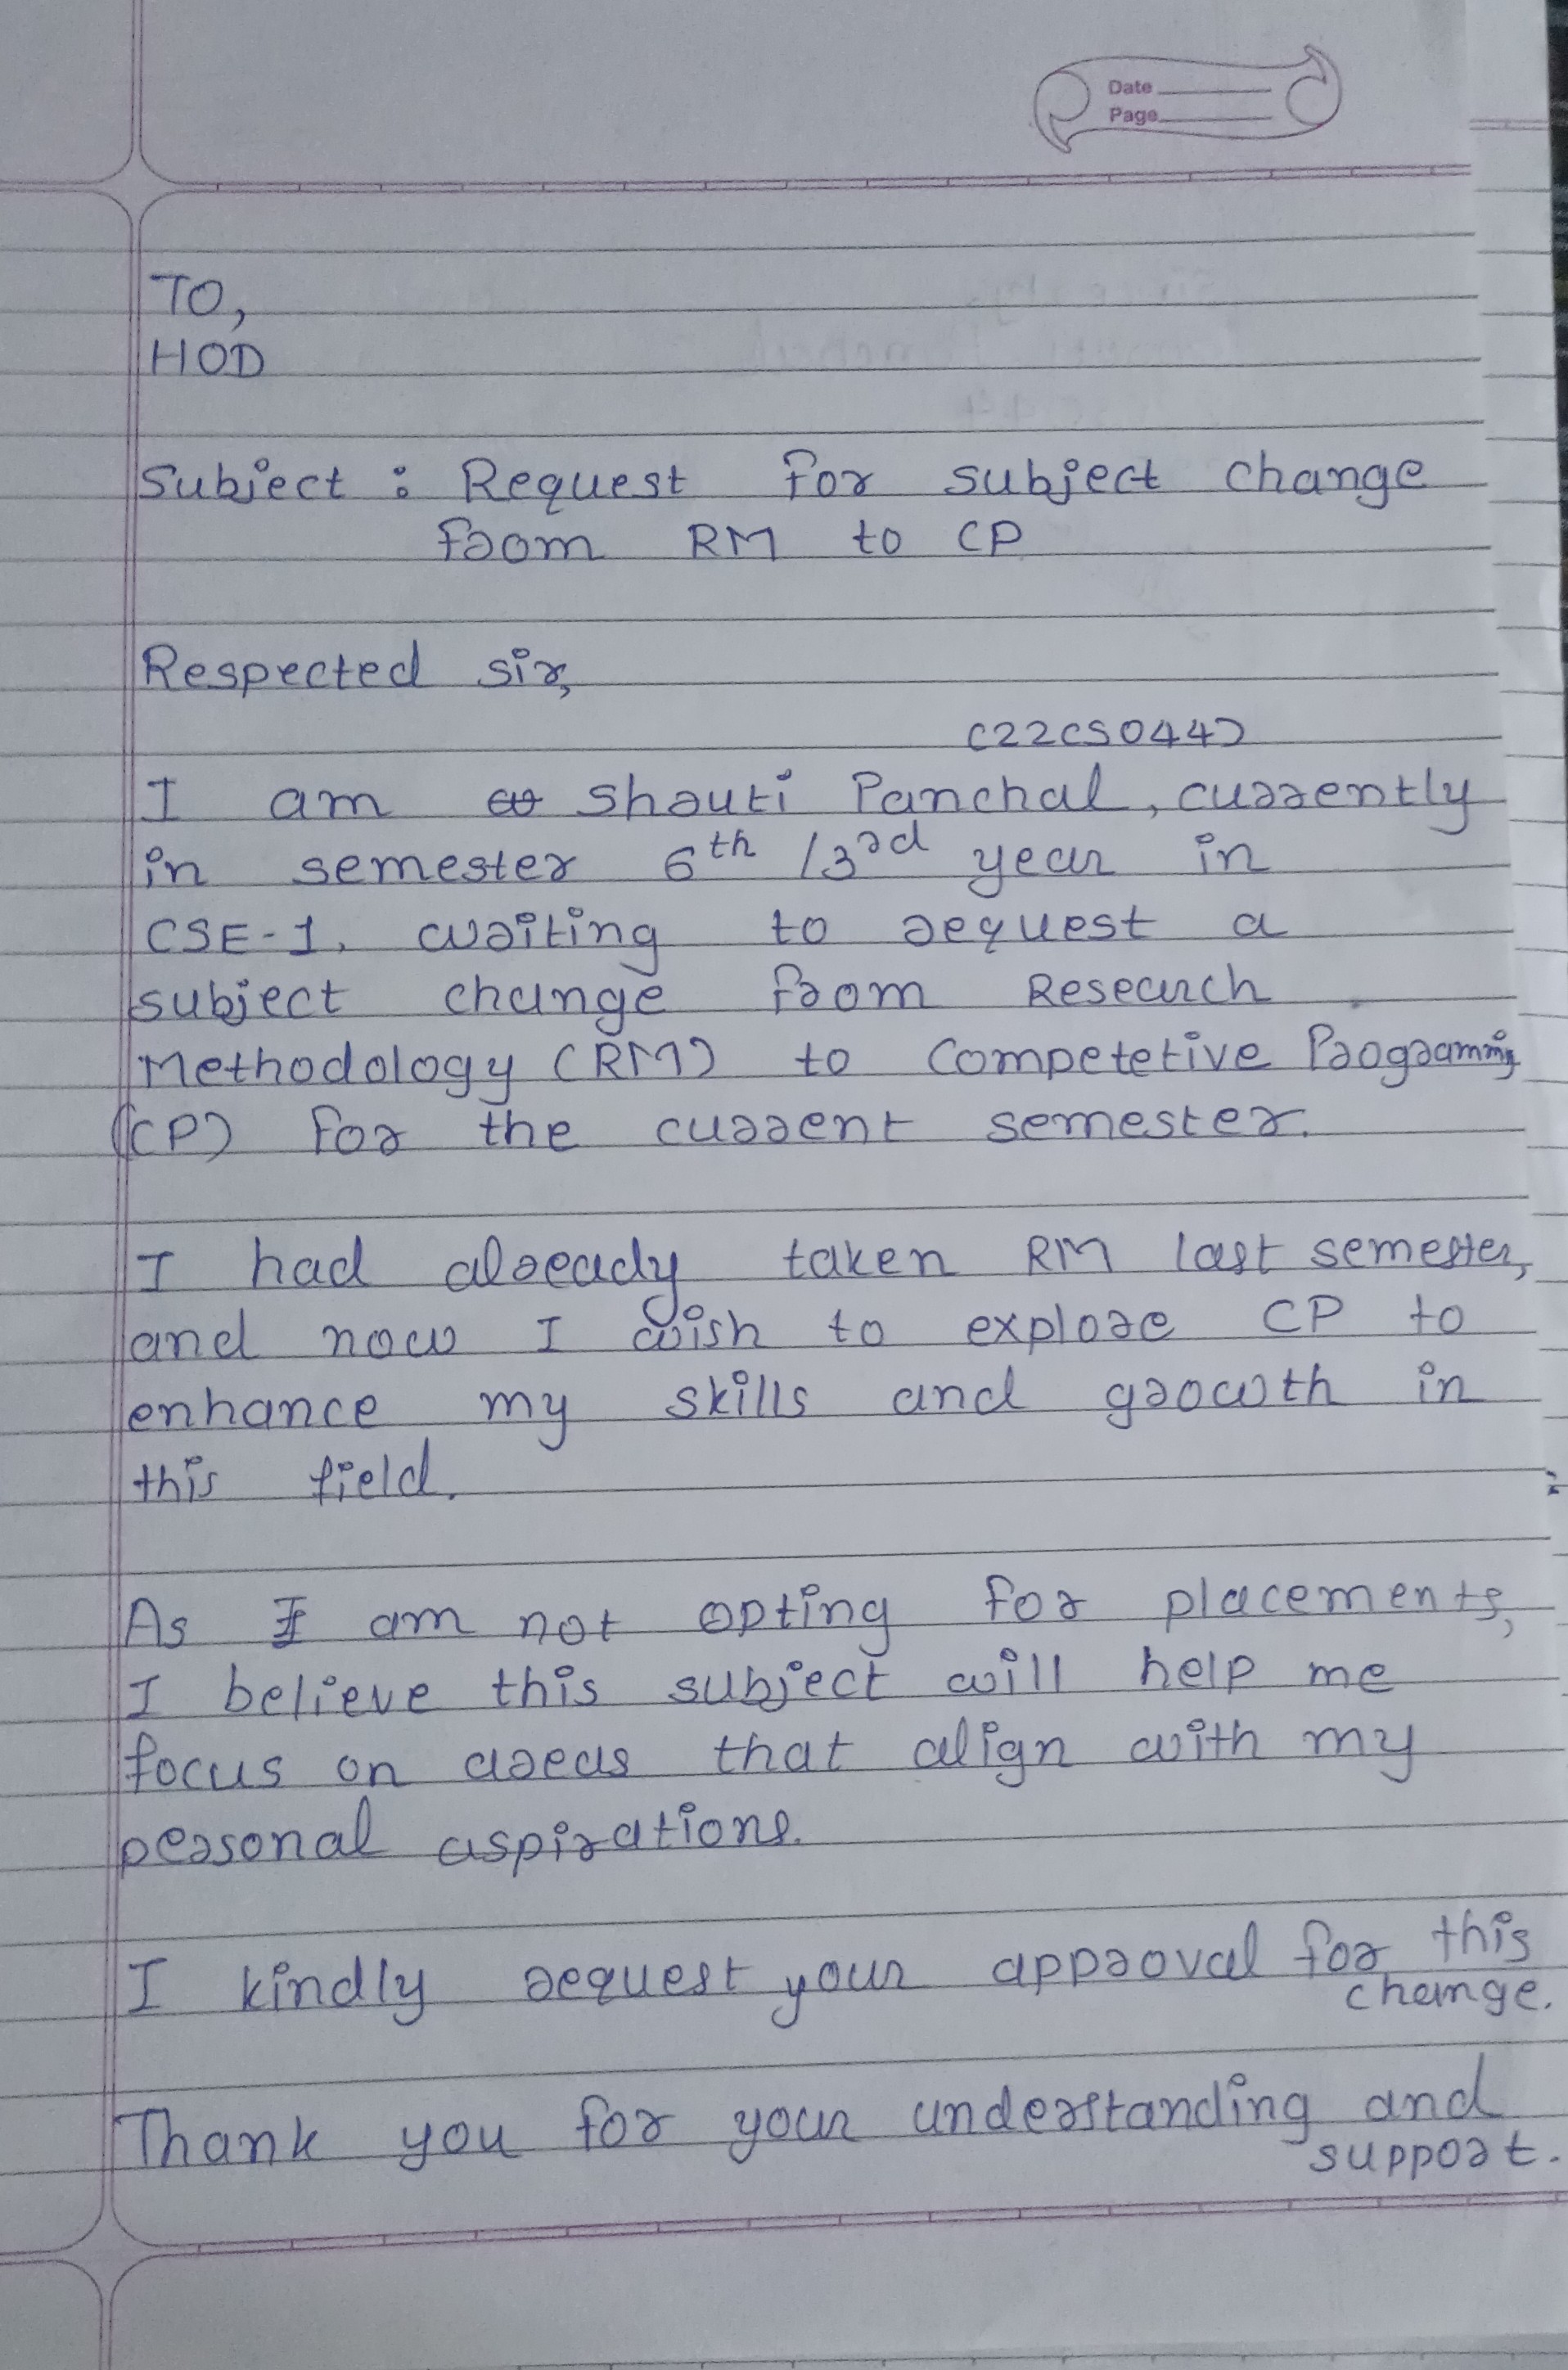 Date
Page
TO,
HOD
Subject : Request for subject change
from RM to CP
Respected sir,
(22CS044)
I am Shruti Panchal, currently
in semester 6th /3rd year in
CSE-1, writing to request a
subject change from Research
Methodology (RM) to Competetive Programming
(CP) for the current semester.
I had already taken RM last semester,
and now I wish to explore CP to
enhance my skills and growth in
this field.
As I am not opting for placements,
I believe this subject will help me
focus on areas that align with my
personal aspirations.
I kindly request your approval for this
change.
Thank you for your understanding and
support.